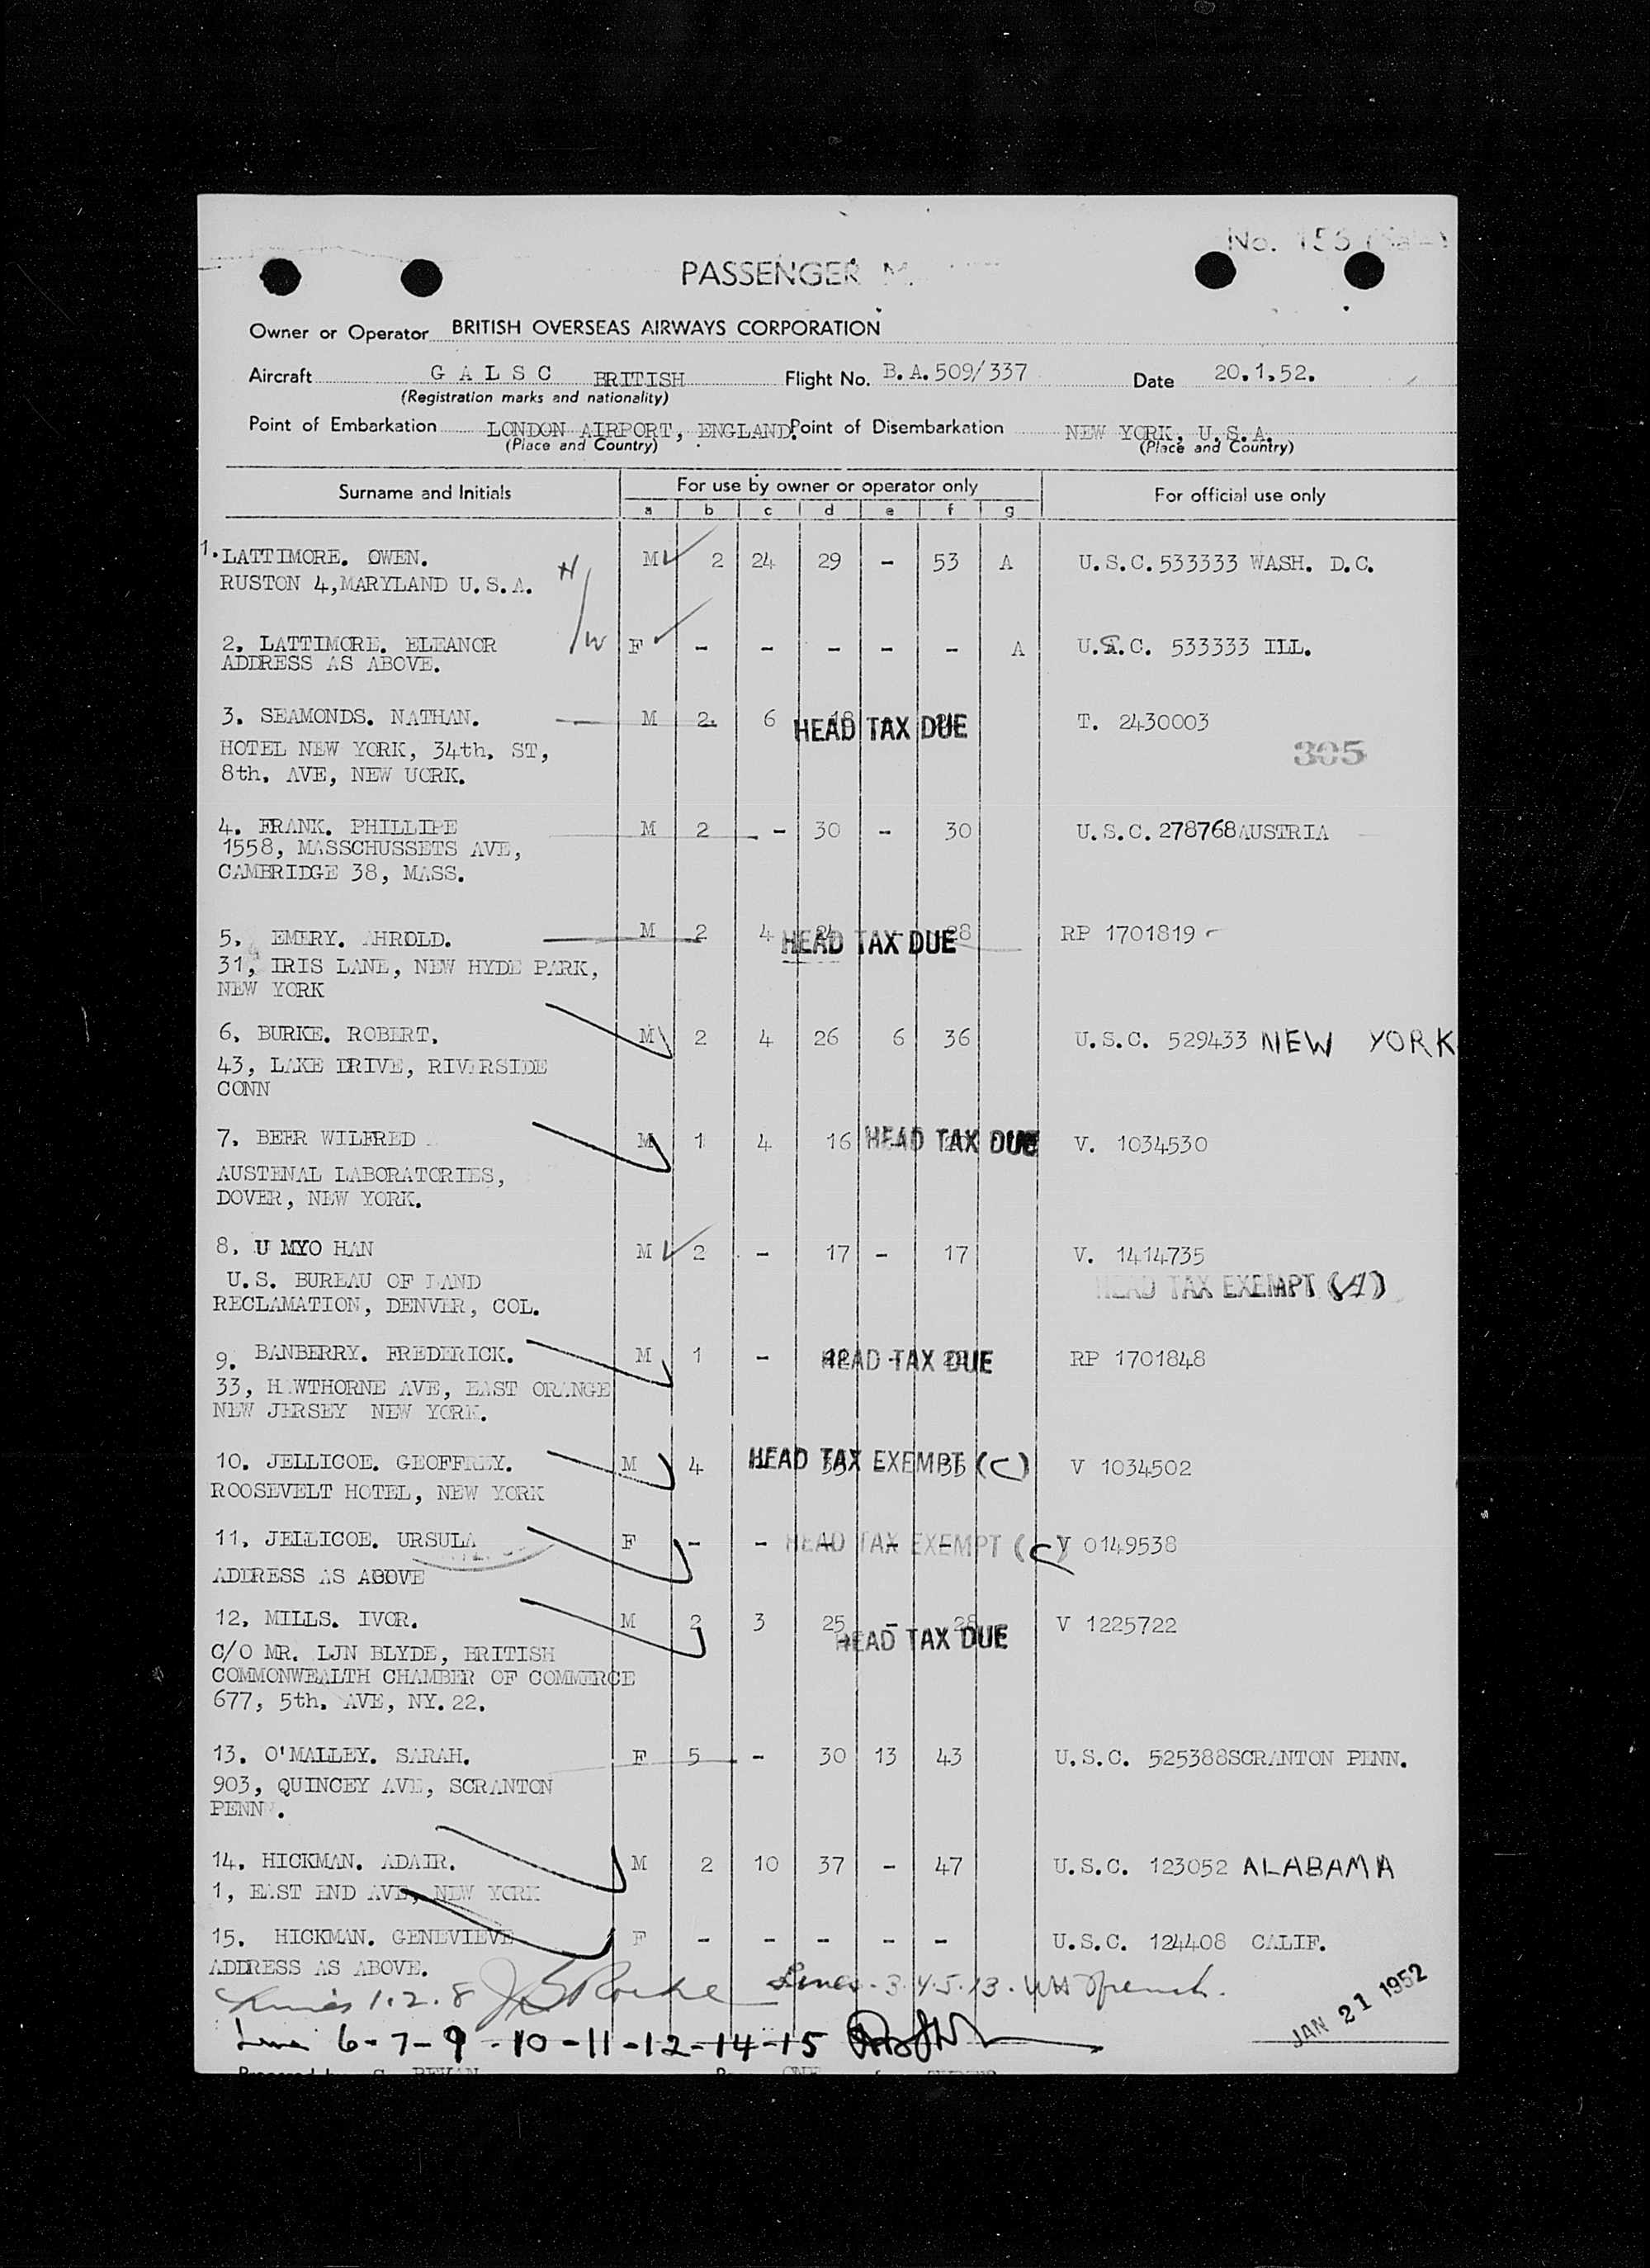 No. 153
PASSENGER M
Owner or Operator BRITISH OVERSEAS AIRWAYS CORPORATION
Aircraft G A L S C BRITISH Flight No. B.A.509/337 Date 20.1.52.
(Registration marks and nationality)
Point of Embarkation LONDON AIRPORT, ENGLAND. Point of Disembarkation NEW YORK, U.S.A.
(Place and Country) (Place and Country)
Surname and Initials For use by owner or operator only For official use only
a b c d e f g
1. LATTIMORE. OWEN. H M 2 24 29 - 53 A U.S.C.533333 WASH. D.C.
RUSTON 4,MARYLAND U.S.A.
2. LATTIMORE. ELEANOR W F - - - - - A U.S.C. 533333 ILL.
ADDRESS AS ABOVE.
3. SEAMONDS. NATHAN. M 2. 6 HEAD TAX DUE T. 2430003
HOTEL NEW YORK, 34th. ST, 305
8th. AVE, NEW UORK.
4. FRANK. PHILLIPE M 2 - 30 - 30 U.S.C.278768AUSTRIA
1558, MASSCHUSSETS AVE,
CAMBRIDGE 38, MASS.
5. EMERY. AHROLD. M 2 4 24 28 HEAD TAX DUE RP 1701819
31, IRIS LANE, NEW HYDE PARK,
NEW YORK
6. BURKE. ROBERT. M 2 4 26 6 36 U.S.C. 529433 NEW YORK
43, LAKE DRIVE, RIVERSIDE
CONN
7. BEER WILFRED M 1 4 16 HEAD TAX DUE V. 1034530
AUSTENAL LABORATORIES,
DOVER, NEW YORK.
8. U MYO HAN M 2 - 17 - 17 V. 1414735
U.S. BUREAU OF LAND HEAD TAX EXEMPT (A)
RECLAMATION, DENVER, COL.
9. BANBERRY. FREDERICK. M 1 - HEAD TAX DUE RP 1701848
33, HAWTHORNE AVE, EAST ORANGE
NEW JERSEY NEW YORK.
10. JELLICOE. GEOFFREY. M 4 - 35 35 HEAD TAX EXEMPT (C) V 1034502
ROOSEVELT HOTEL, NEW YORK
11. JELLICOE. URSULA F - - - - - HEAD TAX EXEMPT (C) V 0149538
ADDRESS AS ABOVE
12. MILLS. IVOR. M 2 3 25 - 28 V 1225722
HEAD TAX DUE
C/O MR. LJN BLYDE, BRITISH
COMMONWEALTH CHAMBER OF COMMERCE
677, 5th. AVE, NY.22.
13. O'MALLEY. SARAH. F 5 - 30 13 43 U.S.C. 525388SCRANTON PENN.
903, QUINCEY AVE, SCRANTON
PENN.
14. HICKMAN. ADAIR. M 2 10 37 - 47 U.S.C. 123052 ALABAMA
1, EAST END AVE, NEW YORK
15. HICKMAN. GENEVIEVE F - - - - - U.S.C. 124408 CALIF.
ADDRESS AS ABOVE.
Lines 1.2.8 Lines - 3.4.5.13.
JAN 21 1952
Lines 6-7-9-10-11-12-14-15